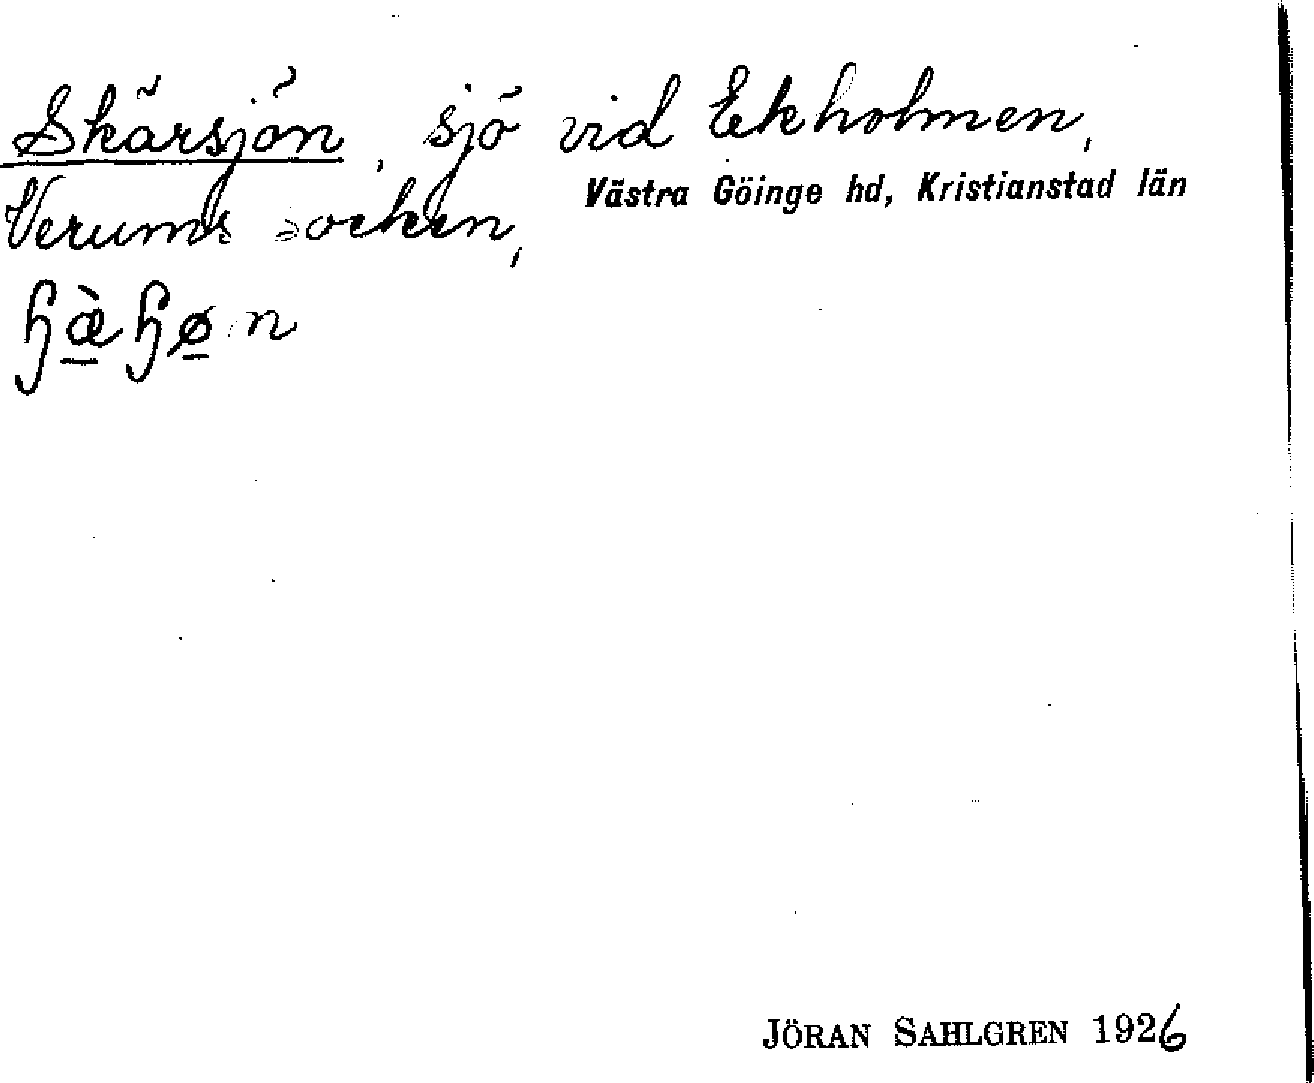 Skärsjön, sjö vid Ekholmen,
Västra Göinge hd, Kristianstad län
Verums socken,
ɧæ̀ɧøn
JÖRAN SAHLGREN 1926